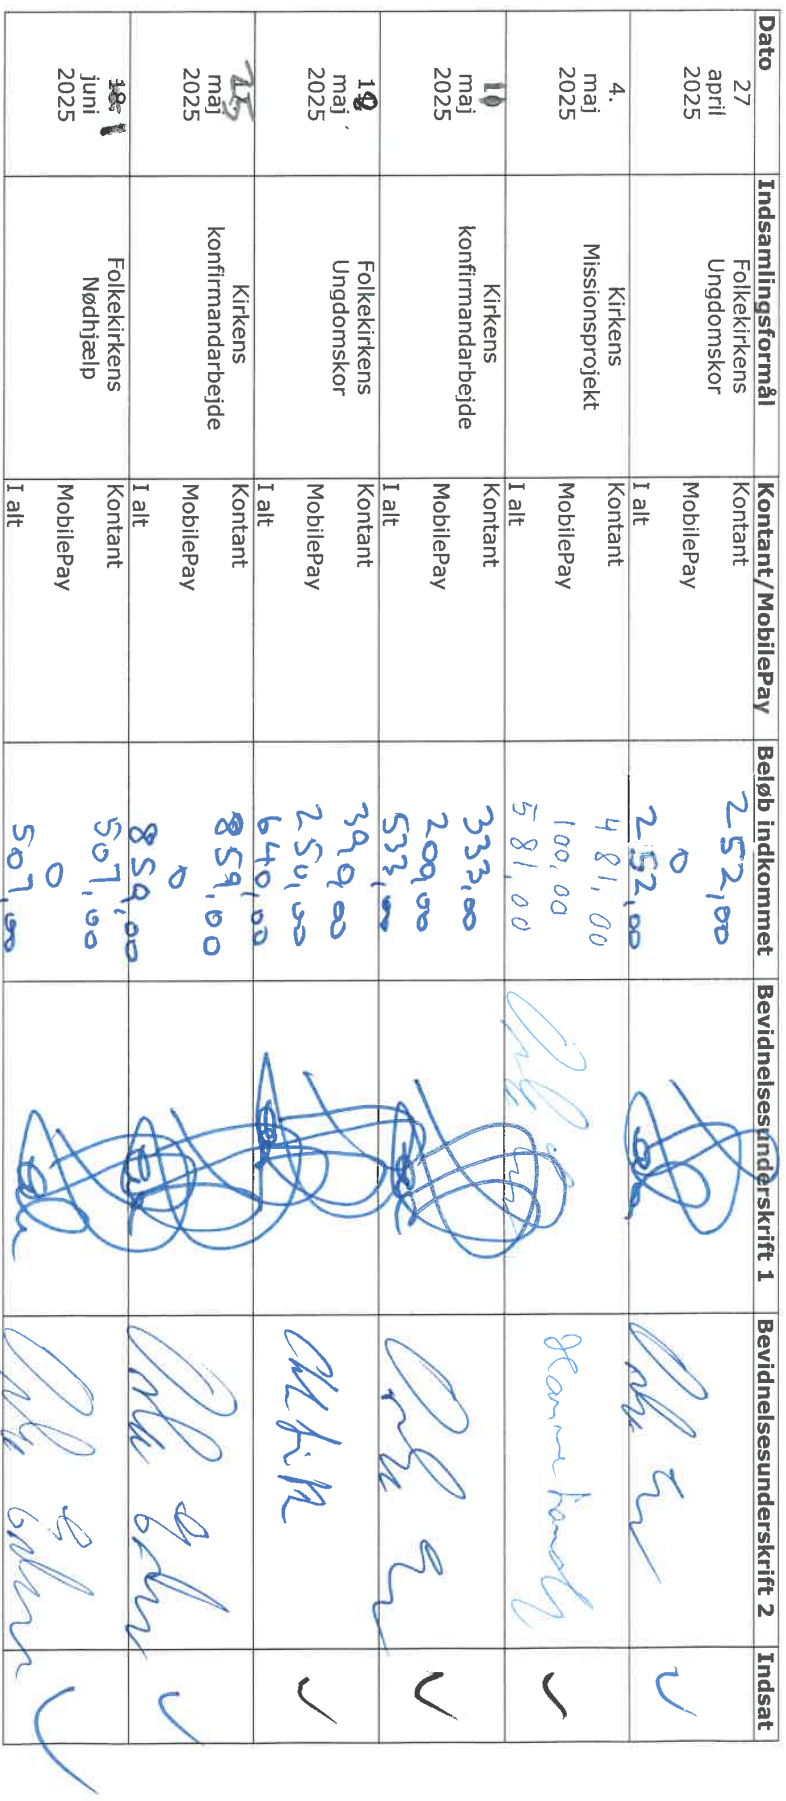 Dato Indsamlingsformål Kontant/MobilePay Beløb indkommet Bevidnelsesunderskrift 1 Bevidnelsesunderskrift 2 Indsat
27
april
2025
Folkekirkens
Ungdomskor
Kontant 252,00
MobilePay 0
I alt 252,00
4.
maj
2025
Kirkens
Missionsprojekt
Kontant 481,00
MobilePay 100,00
I alt 581,00
maj
2025
Kirkens
konfirmandarbejde
Kontant 333,00
MobilePay 200,00
I alt 533,00
maj
2025
Folkekirkens
Ungdomskor
Kontant 390,00
MobilePay 250,00
I alt 640,00
25
maj
2025
Kirkens
konfirmandarbejde
Kontant 859,00
MobilePay 0
I alt 859,00
juni
2025
Folkekirkens
Nødhjælp
Kontant 507,00
MobilePay 0
I alt 507,00